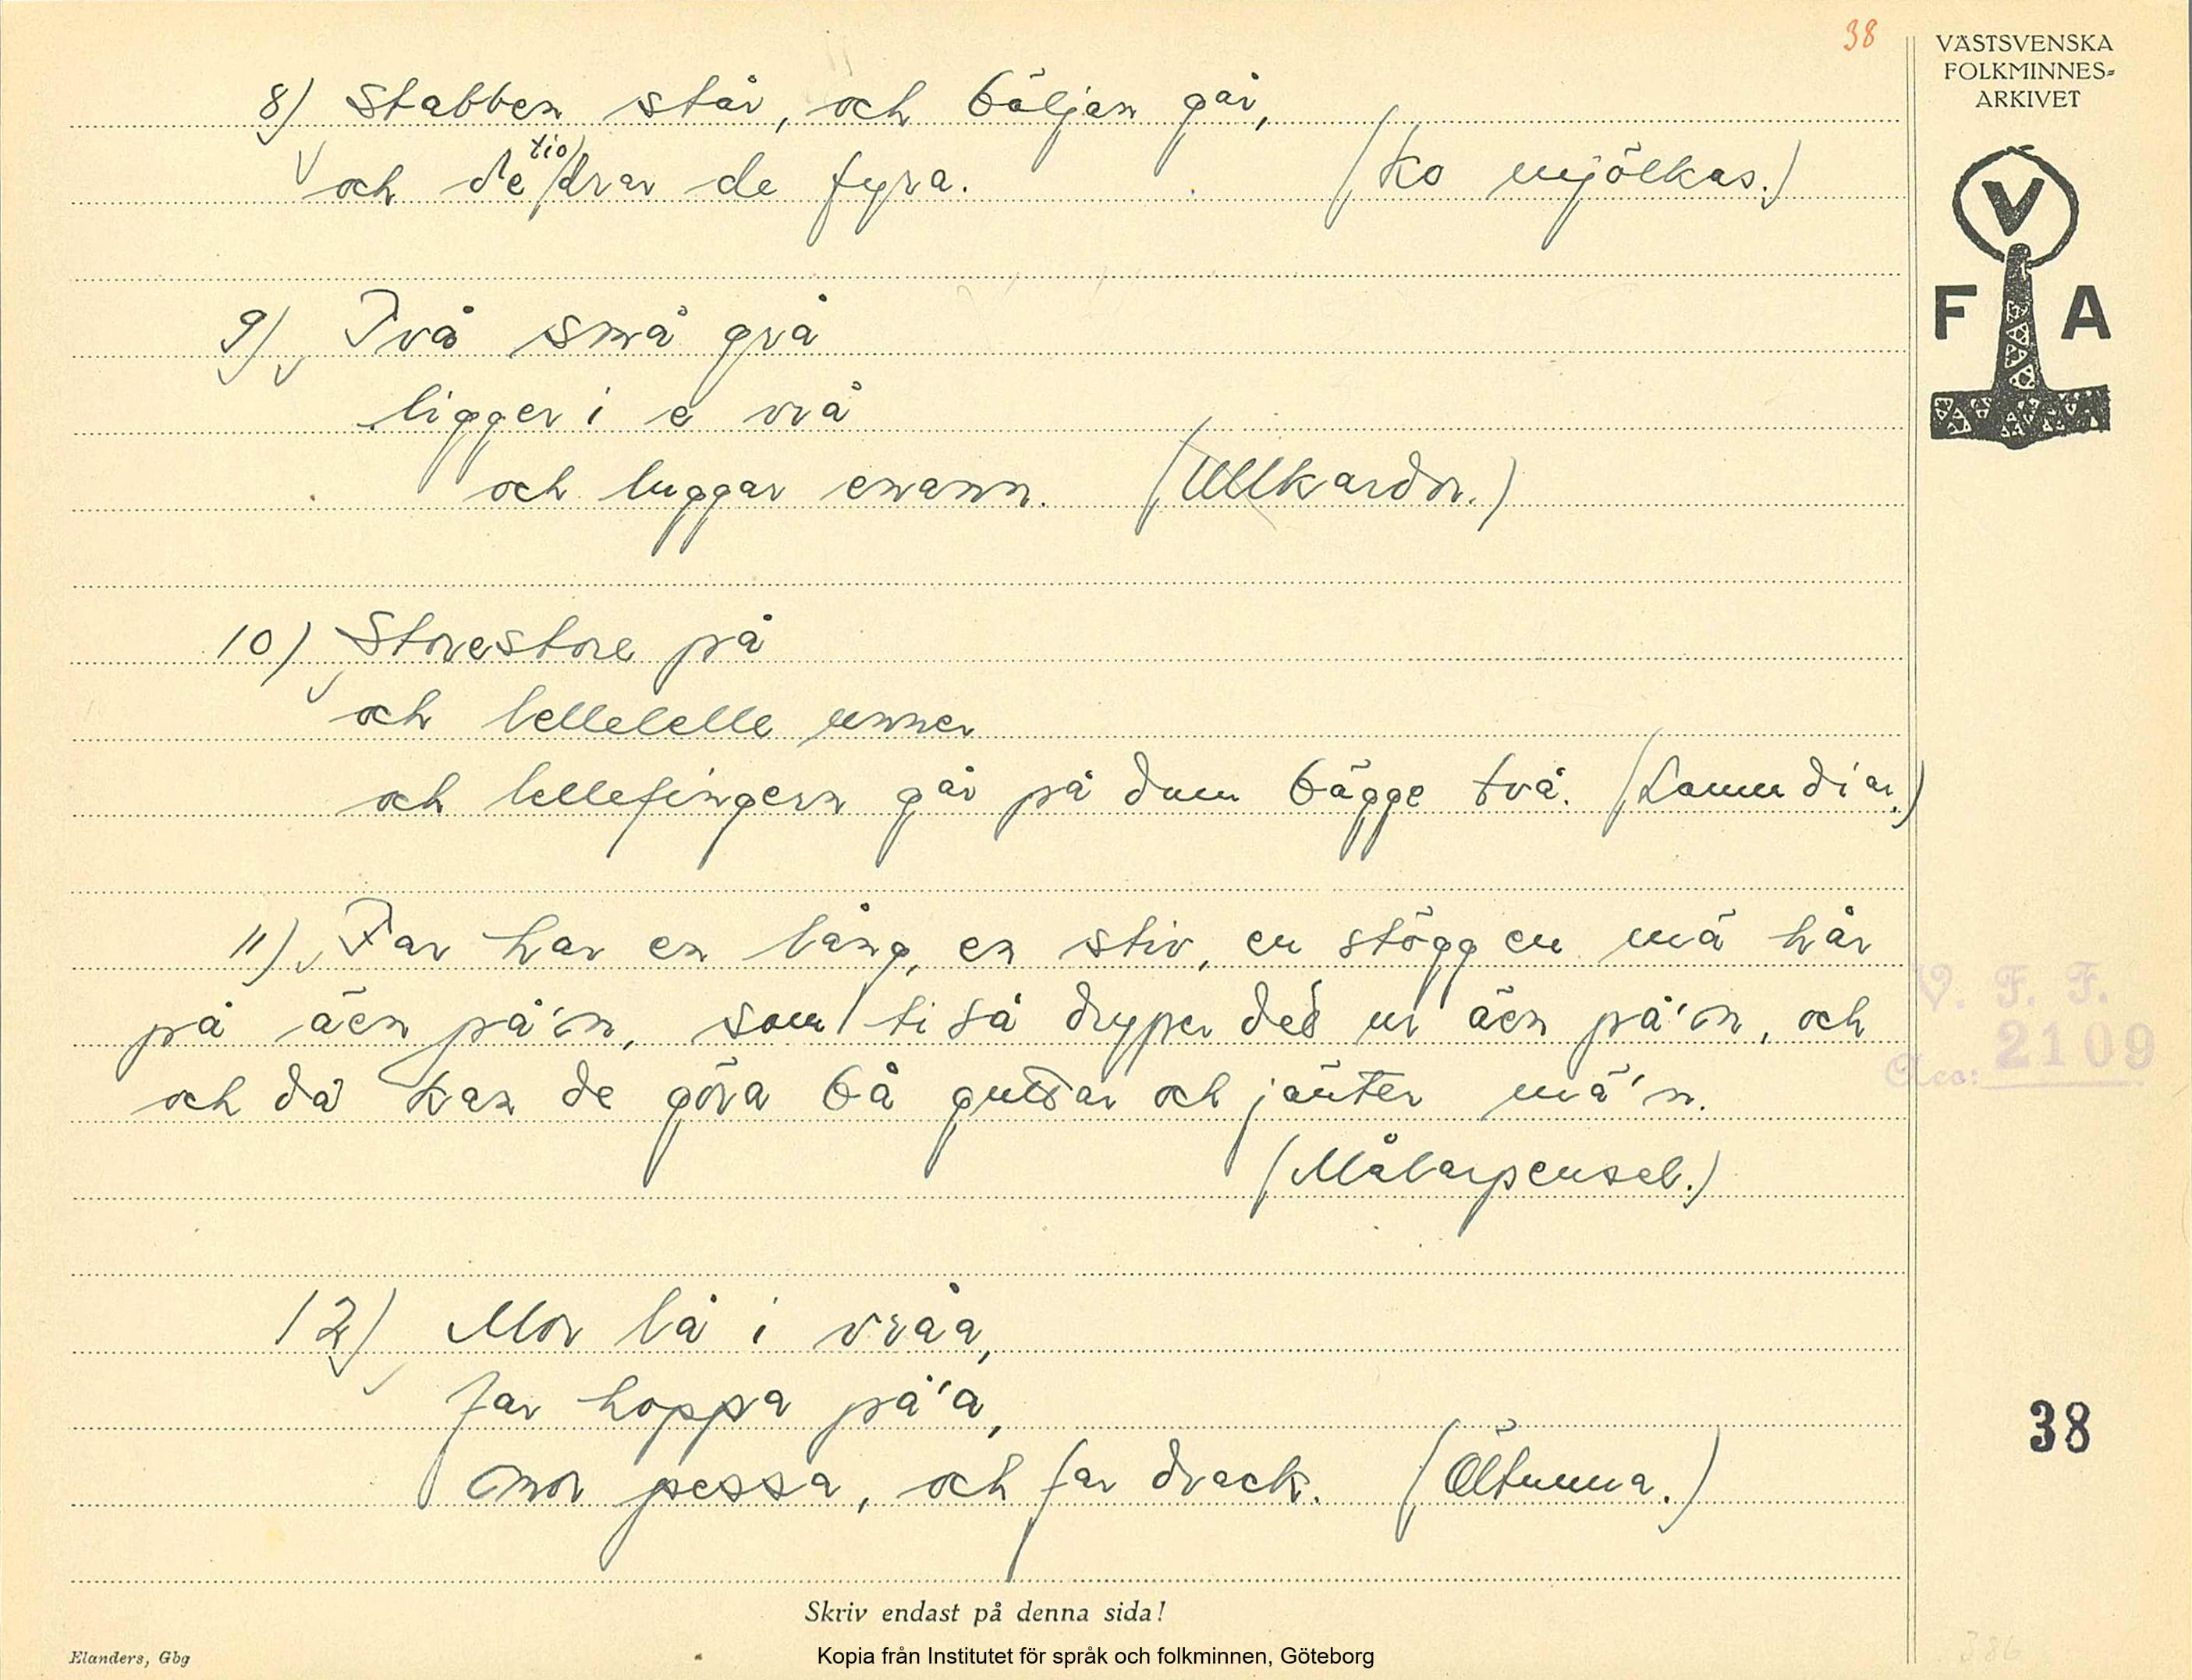 38
VÄSTSVENSKA
FOLKMINNES=
ARKIVET
V
F A
8) Stabben står, och böljan går,
och de tio drar de fyra. (Ko mjölkas.)
9) Två små grå
ligger i e vrå
och luggar enann. (Ullkardor.)
10) Storestore på
och lellelelle unner
och lellefingern går på dum bägge två. (Lamm diar.)
11) Far har en lång, en stiv, en stögg en mä hår
på äen på'n, som ti så dryper de ur äen på'n, och
och då kan de göra bå guttar och jänter mä'n.
(Målarpensel.)
12) Mor lå i vråa,
far hoppa på'a,
mor pessa, och far drack. (Öltunna.)
V. F. F.
Acc: 2109
38
Skriv endast på denna sida!
Elanders, Gbg
Kopia från Institutet för språk och folkminnen, Göteborg
386